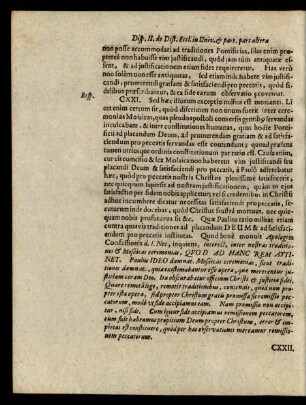 Disp. II. de Dist. Eccl. in Univ. & part. pars altera
non posse accommodari ad traditiones Pontificias, illas enim pro-
pterea non habuisse vim justificandi, quòd jam tùm antiquatæ es-
sent, & ad justificationem etiam fides requireretur. Has verò
non solùm non esse antiquatas, sed etiam inde habere vim justifi-
candi, promerendi gratiam & satisfaciendi pro peccatis, quòd fi-
delibus præscribantur, & ex fide earum observatio proveniat.
Resp. CXXI. Sed hæc illorum exceptio nullius est momenti. Li-
cet enim certum sit, quòd discrimen non unum fuerit inter cere-
monias Mosaicos, quas pseudoapostoli conversis gentib9 servandas
inculcabant, & inter constitutiones humanas, quas hodie Ponti-
ficii ad placendum Deum, ad promerendam gratiam & ad satisfa-
ciendum pro peccatis servandas esse contendunt; quoad præsens
tamen utriusque ordinis constitutionum par ratio est. Causa enim,
cur circumcisio & lex Molaica non haberent vim justificandi seu
placandi Deum & satisfaciendi pro peccatis, à Paulô adferebatur
hæc, quòd pro peccatis nostris Christus plenissimè satisfecerit,
nec quicquam superesse ad nostram justificationem vel satisfactio-
nem, quod aut Judæis aut gentib9 vel infidelib9 vel credentib. in Christū
adhuc incumbere dicatur necessitas satisfaciendi pro peccatis, es-
tenus inde docebat, quòd Christus frustrà mortuus, nec quic-
quam nobis profuturus sit &c. Quæ Paulina ratio militat etiam
contra quasvis traditiones ad placandum DEUM & ad satisfacien-
dum pro peccatis institutas. Quod benè monuit Apologia
Confessionis d. l. Nec, inquiens, interest, inter nostras traditio-
nes & Mosaicas ceremonias, QVOD AD HANC REM ATTI-
NET. Paulus IDEO damnat Mosaicas ceremonias, sicut tradi-
tiones damnat, quia existimabantur esse opera, quæ mererentur ju-
stitiam coram Deo. Ita obscurabatur officium Christi & justitia fidei.
Quare remota lege, remotis traditionibus, contendit, quòd non pro-
pter ista opera, sed propter Christum gratis promissa sit remissio pec-
catorum, modò ut fide accipiamus eam. Nam promissio non accipi-
tur, nisi fide. Cum igitur fide accipiamus remissionem peccatorum,
cùm fide habeamus propitium Deum propter Christum, error & im-
pietas est constituere, quòd per has observationes mereamur remissio-
nem peccatorum.
CXXII.